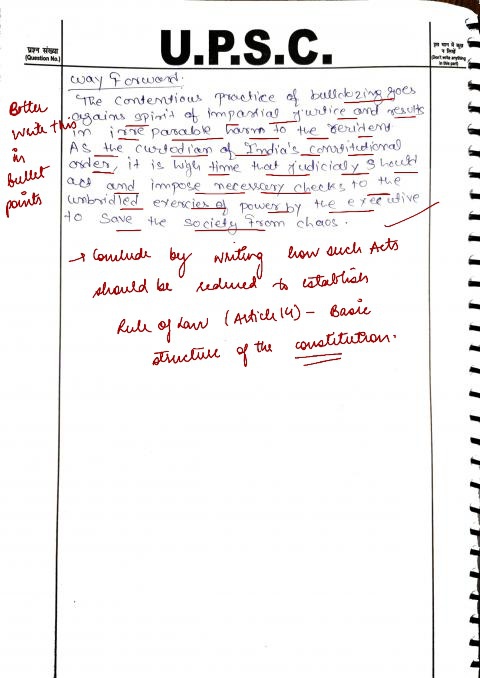 प्रश्न संख्या
(Question No.)
U.P.S.C.
इस भाग में कुछ
न लिखें
(Don't write anything
in this part)
Way Forward:
The contentious practice of bulldozing goes
agains spirit of impartial justice and results
in irreparable harm to the resident
As the custodian of India's constitutional
order, it is high time that judicialy should
act and impose necessary checks to the
unbridled exercies of power by the executive
to save the society from chaos.
Better
write this
in
bullet
points
→ Conclude by writing how such Acts
should be reduced to establish
Rule of Law (Article 14) - Basic
structure of the constitution.